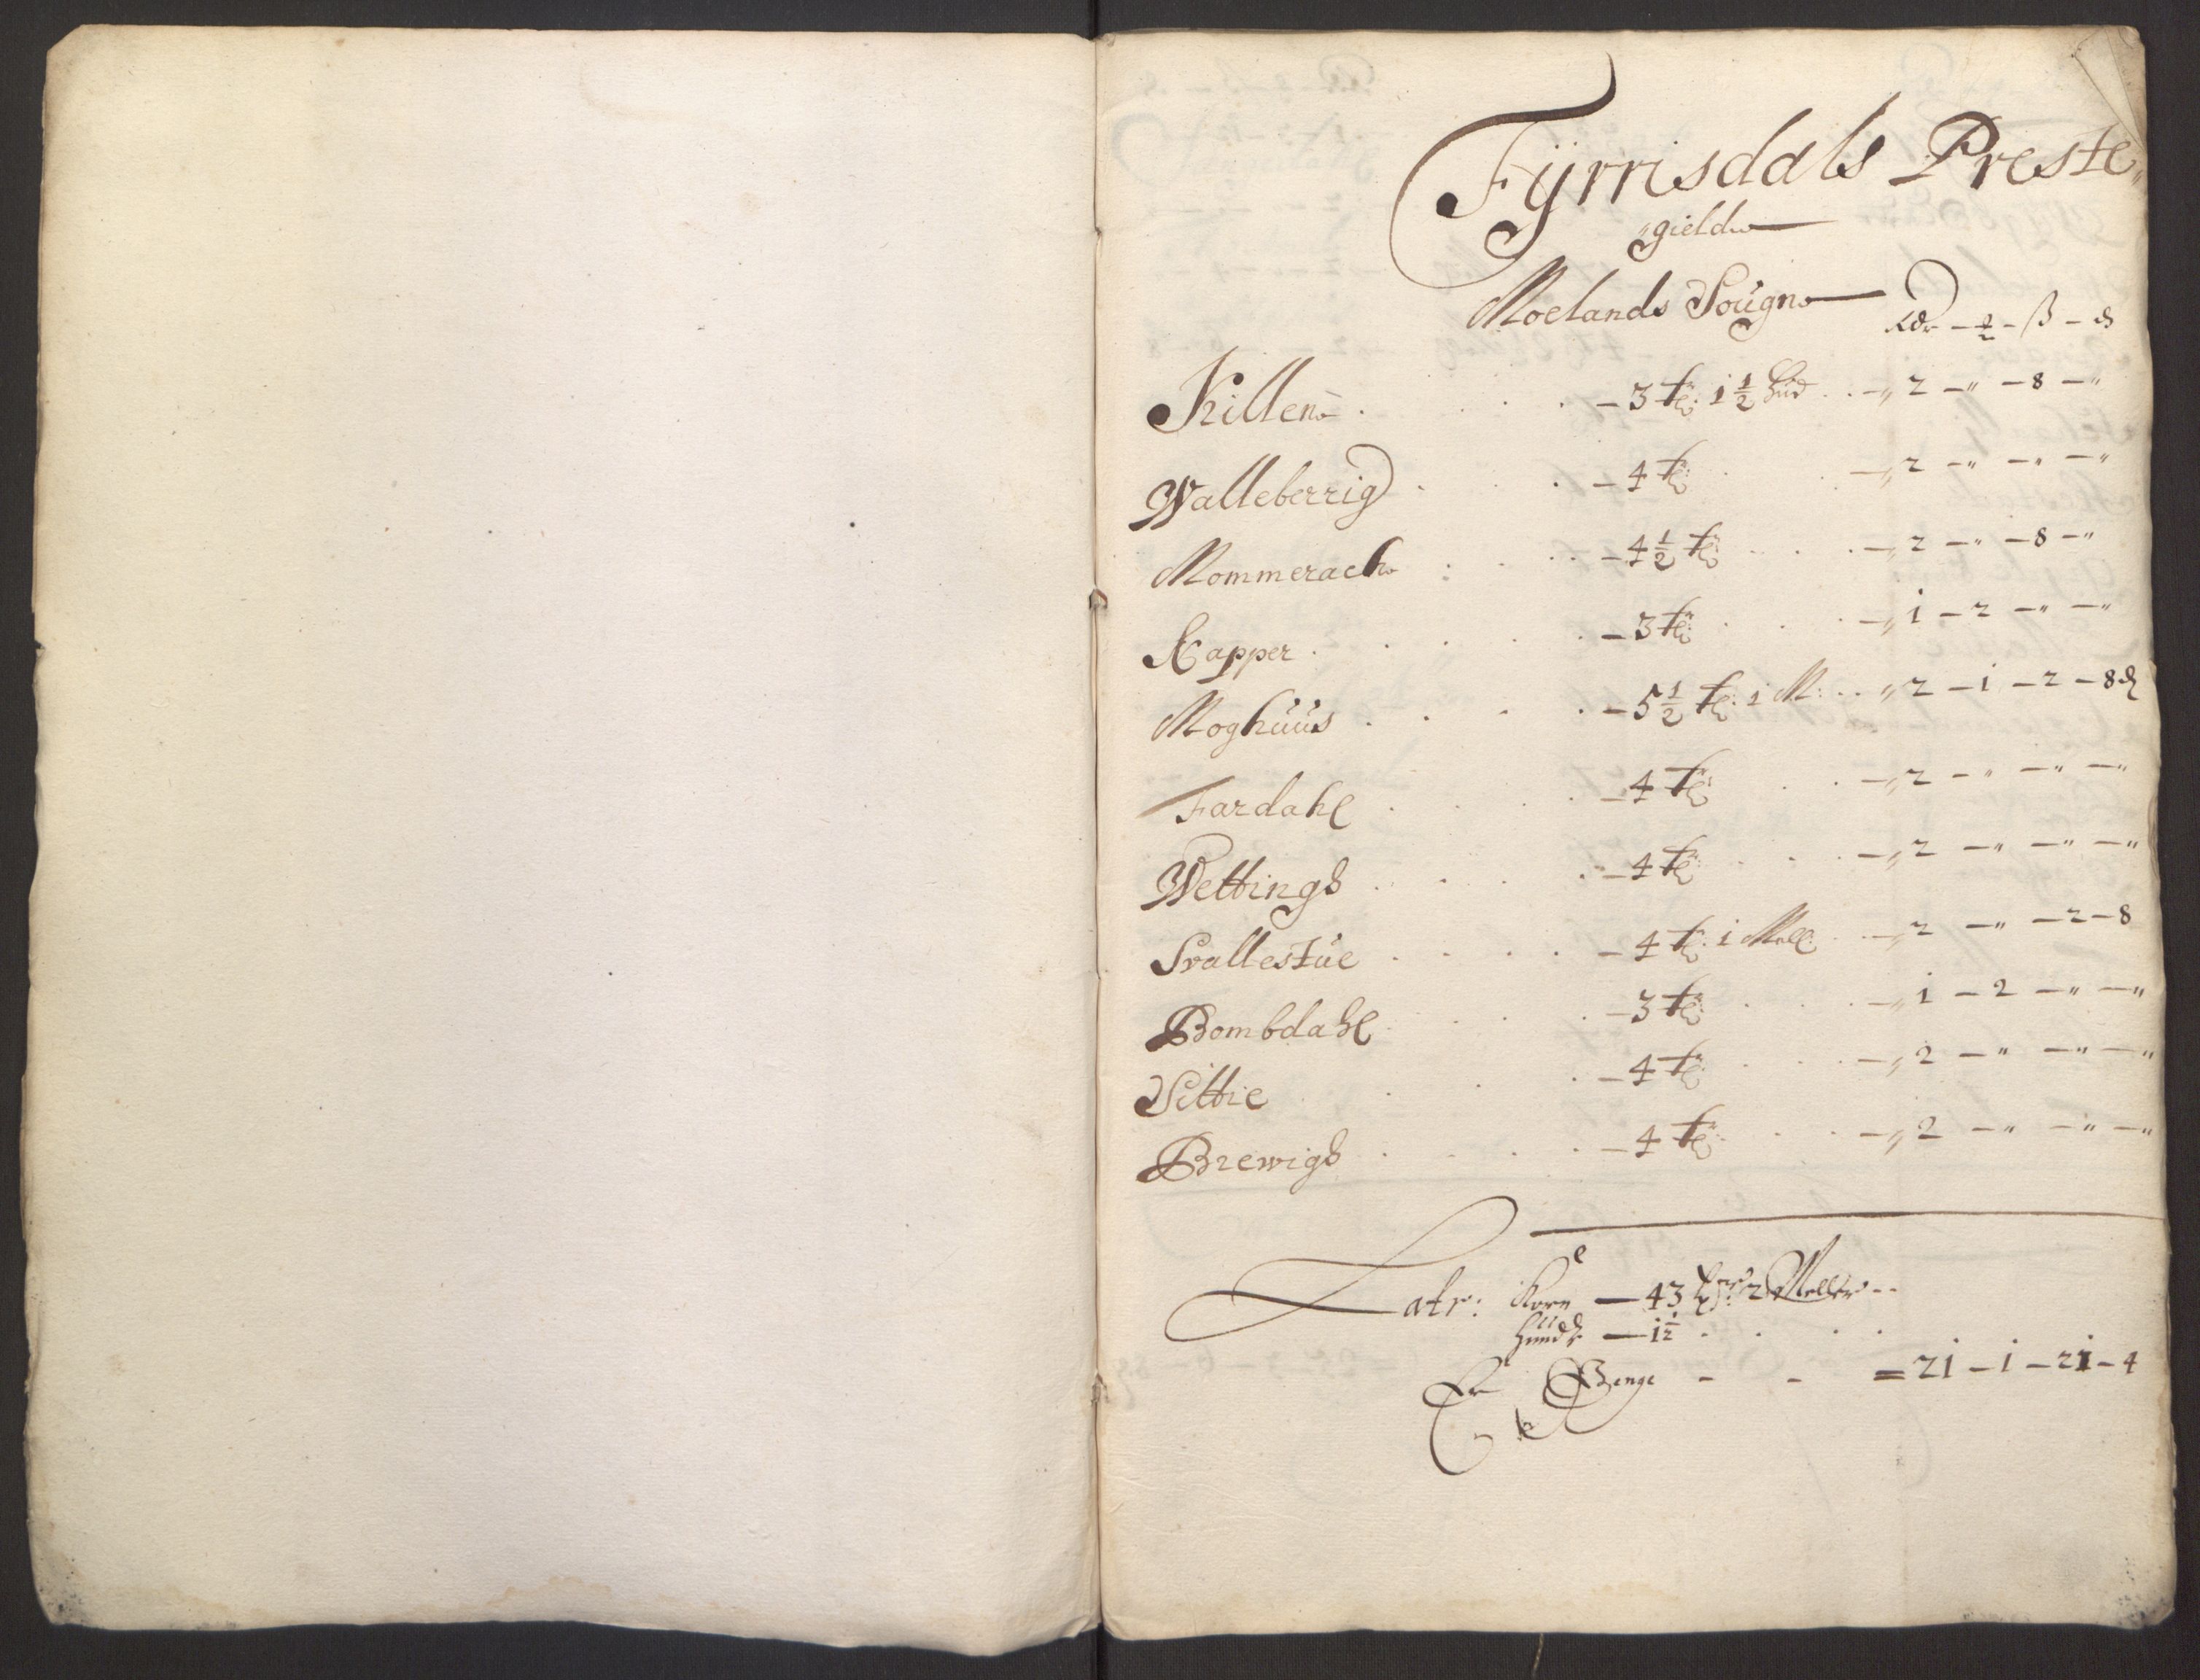 Fÿrrisdals Preste„
„gield
Moelands Sougn Rdr — ß — d
Killen . . . — 3 t: 1 1/2 hud . . — „ 2 — „ — 8 — „
Walleberrig . . . — 4 t: . . — „ 2 — „ — „ — „
Mommerach . . . — 4 1/2 t: . . . — „ 2 — „ — 8 — „
Kapper . . . . — 3 t: . . . — „ 1 — 2 — „ — „
Moghuus . . . . — 5 1/2 t: 1 M: . . „ 2 — 1 — 2 — 8 d
Fardahl . . . . — 4 t: . . — „ 2 — „ — „ — „
Wettings . . . . — 4 t: . . . — „ 2 — „ — „ — „
Svallestue . . . . — 4 t: 1 Mell: . — „ 2 — „ — 2 — 8
Bombdahl . . . — 3 t: . . . — „ 1 — 2 — „ — „
Sittie . . . — 4 t: . . . — „ 2 — „ — „ — „
Brewigs . . . . — 4 t: . . . — „ 2 — „ — „ — „
Latr: Korn — 43 2 Meller --
Huud — 1 1/2 . . . .
Er Penge - - = 21 — 1 — 21 — 4